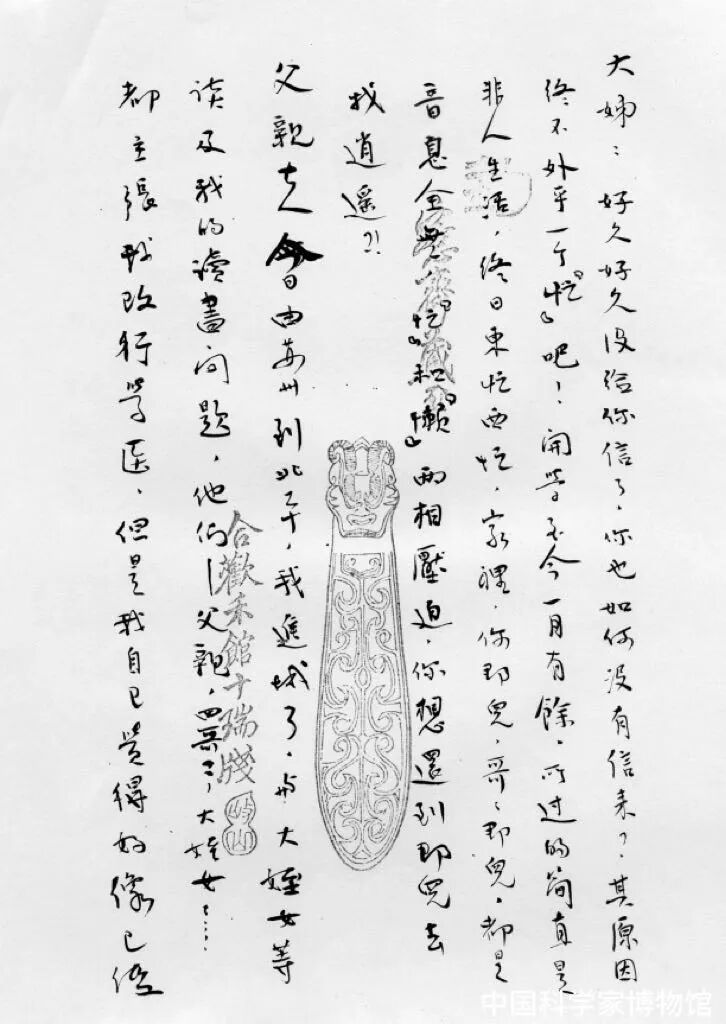 大姊：好久好久沒給你信了，你也如何沒有信来？其原因
終不外乎一个『忙』吧！開学至今一月有餘，所过的簡直是
非人生活，終日東忙西忙，家裡，你那兒，哥哥那兒，都是
音息全無，『忙』和『懶』兩相壓迫，你想還到那兒去
找逍遥？！
父親大人今日由蘇州到北平，我進城了，与大姪女等
談及我的讀書问題，他们—父親，四哥，大姪女……
都主張我改行学医，但是我自已覺得好像已經
合歡禾館十瑞牋
中国科学家博物馆